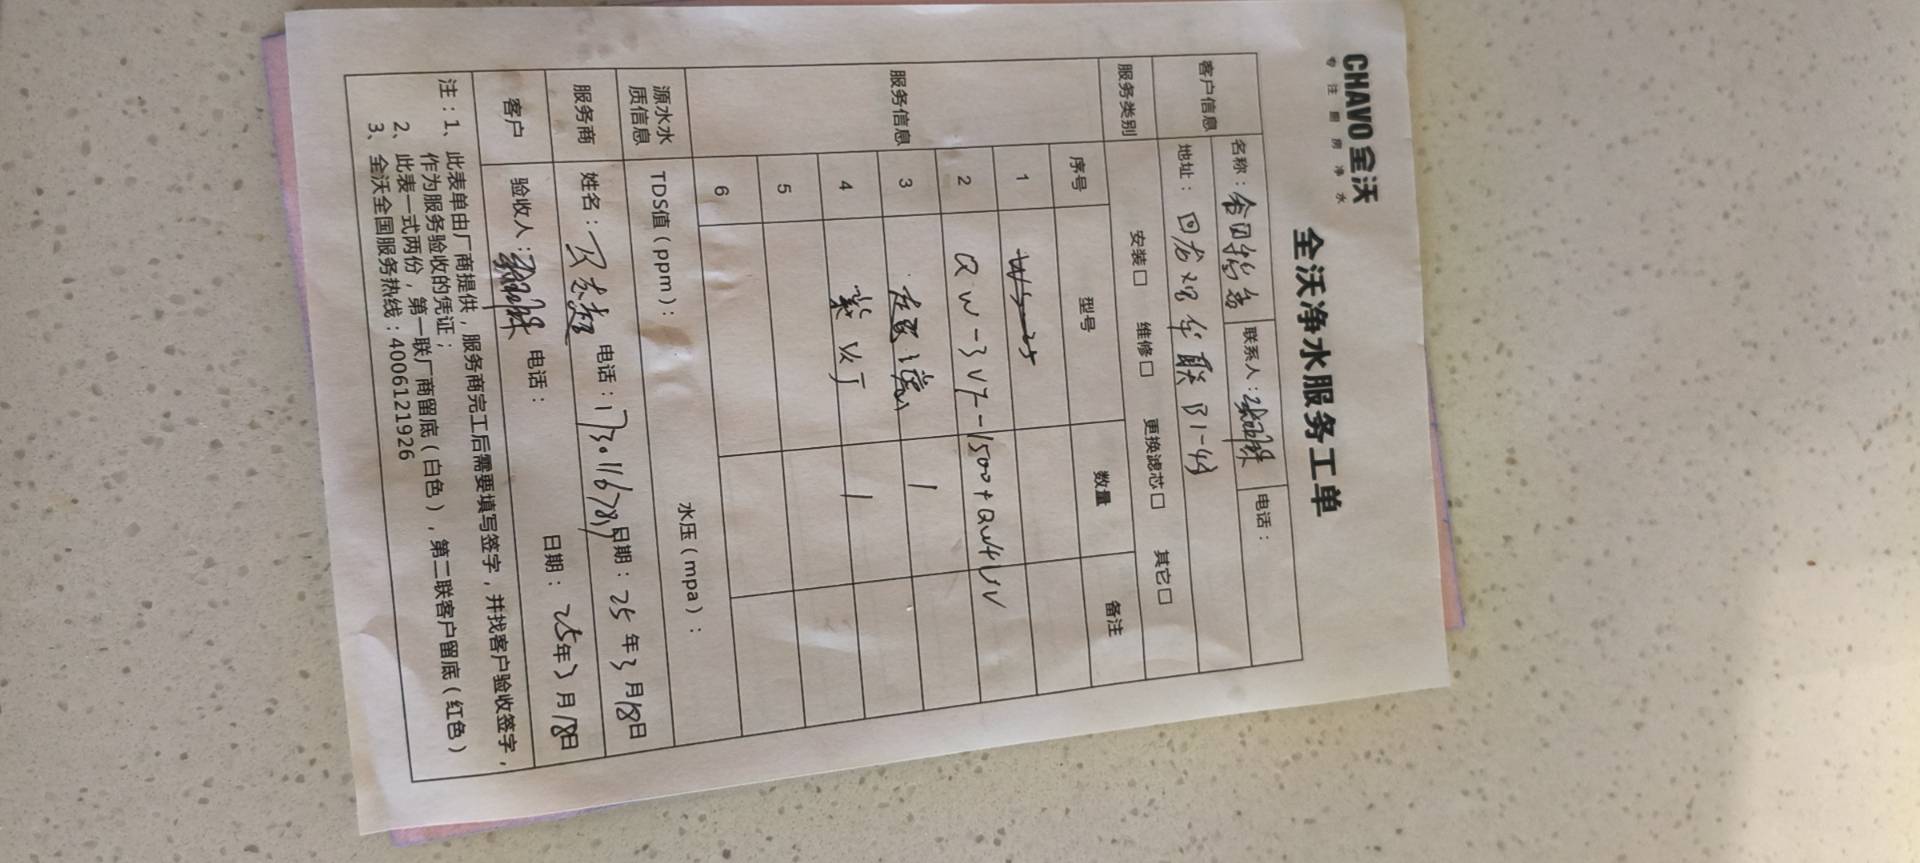 CHAVO 全沃
专注厨房净水
全沃净水服务工单
客户信息
名称：
联系人：
电话：
地址：回龙观华联B1-48
服务类别
安装□ 维修□ 更换滤芯□ 其它□
服务信息
序号 型号 数量 备注
1
2 QW-3V7-1500+QW4UV
3 1
4 紫外灯 1
5
6
源水水质信息
TDS值（ppm）：
水压（mpa）：
服务商
姓名：
电话：
日期：25年3月18日
客户
验收人：
电话：
日期：25年3月18日
注：1、此表单由厂商提供，服务商完工后需要填写签字，并找客户验收签字，
作为服务验收的凭证；
2、此表一式两份，第一联厂商留底（白色），第二联客户留底（红色）
3、全沃全国服务热线：4006121926